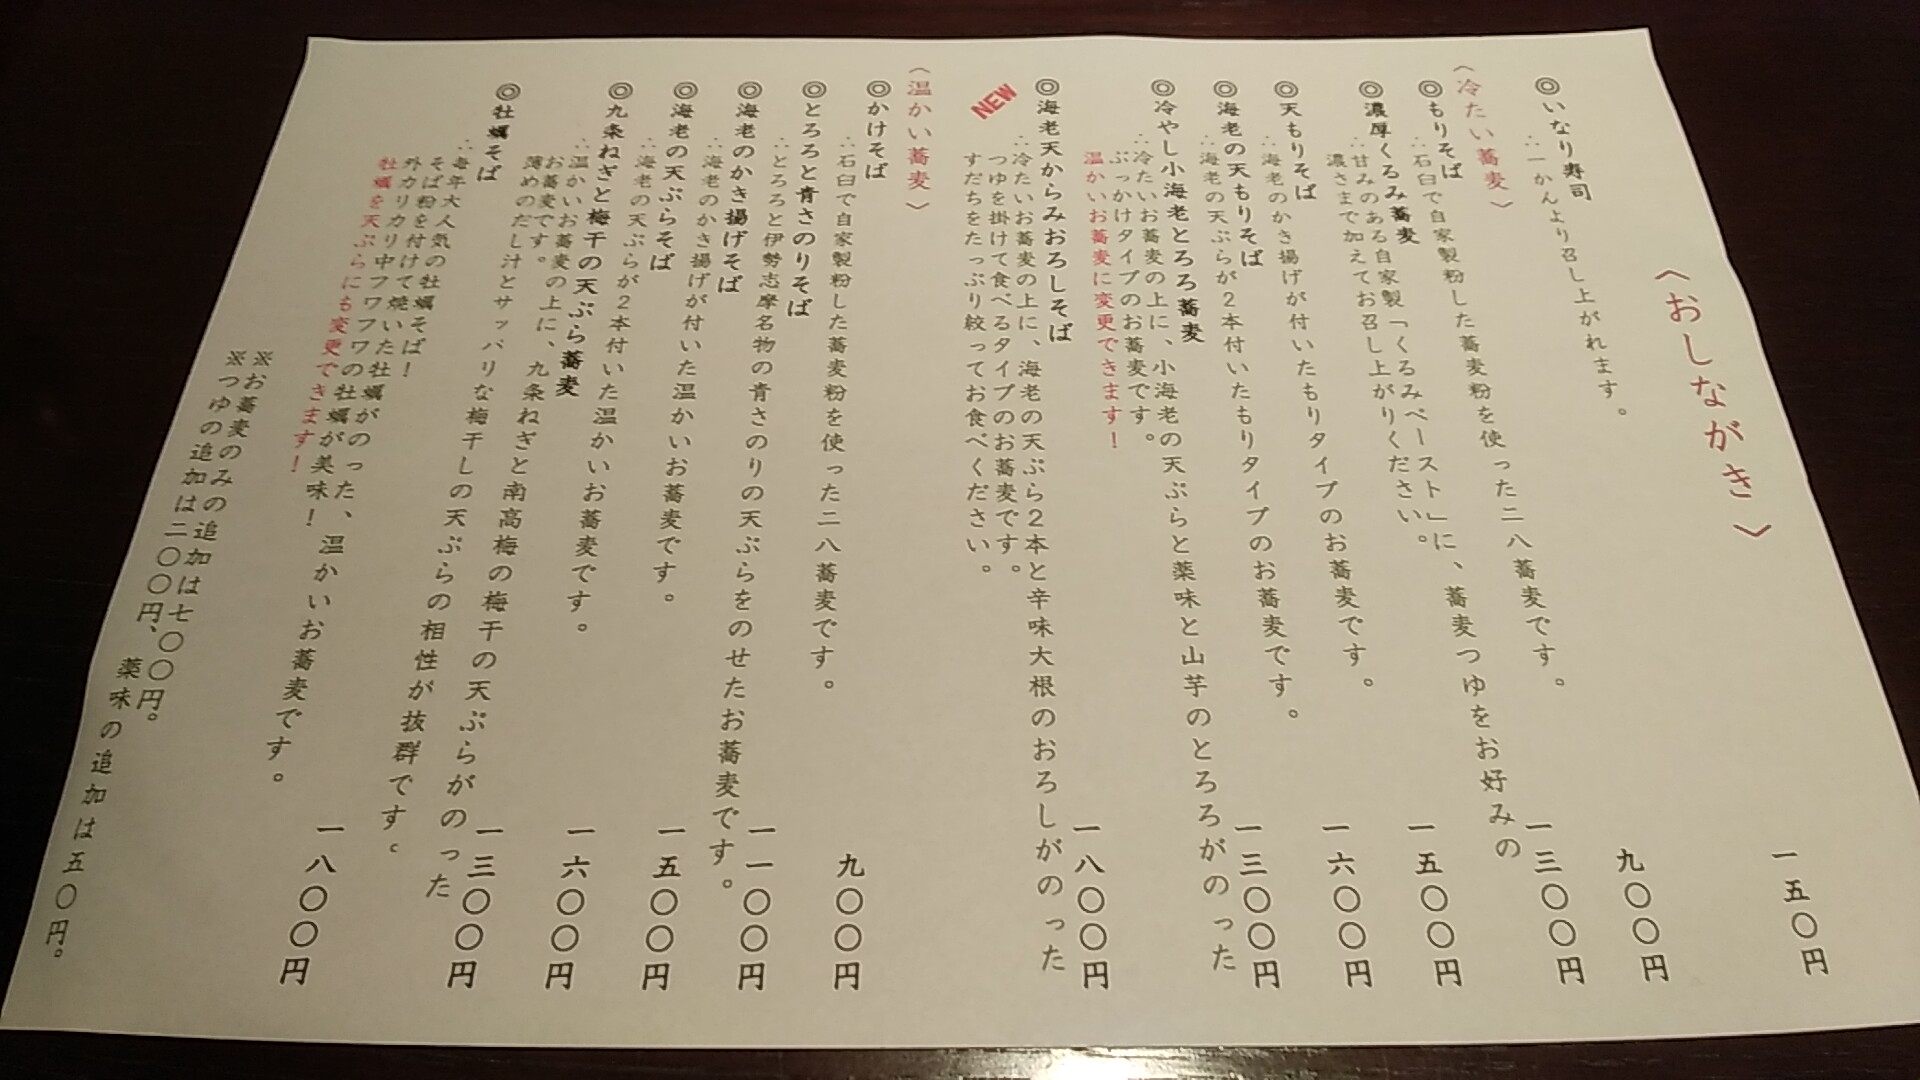 〈おしながき〉
◎いなり寿司 一五〇円
∴一かんより召し上がれます。
〈冷たい蕎麦〉
◎もりそば 九〇〇円
∴石臼で自家製粉した蕎麦粉を使った二八蕎麦です。
◎濃厚くるみ蕎麦 一三〇〇円
∴甘みのある自家製「くるみペースト」に、蕎麦つゆをお好みの
濃さまで加えてお召し上がりください。
◎天もりそば 一五〇〇円
∴海老のかき揚げが付いたもりタイプのお蕎麦です。
◎海老の天もりそば 一六〇〇円
∴海老の天ぷらが2本付いたもりタイプのお蕎麦です。
◎冷やし小海老とろろ蕎麦 一三〇〇円
∴冷たいお蕎麦の上に、小海老の天ぷらと薬味と山芋のとろろがのった
ぶっかけタイプのお蕎麦です。
温かいお蕎麦に変更できます！
◎海老天からみおろしそば 一八〇〇円
NEW
∴冷たいお蕎麦の上に、海老の天ぷら2本と辛味大根のおろしがのった
つゆを掛けて食べるタイプのお蕎麦です。
すだちをたっぷり絞ってお食べください。
〈温かい蕎麦〉
◎かけそば 九〇〇円
∴石臼で自家製粉した蕎麦粉を使った二八蕎麦です。
◎とろろと青さのりそば 一一〇〇円
∴とろろと伊勢志摩名物の青さのりの天ぷらをのせたお蕎麦です。
◎海老のかき揚げそば 一五〇〇円
∴海老のかき揚げが付いた温かいお蕎麦です。
◎海老の天ぷらそば 一六〇〇円
∴海老の天ぷらが2本付いた温かいお蕎麦です。
◎九条ねぎと梅干の天ぷら蕎麦 一三〇〇円
∴温かいお蕎麦の上に、九条ねぎと南高梅の梅干の天ぷらがのった
お蕎麦です。
薄めのだし汁とサッパリな梅干しの天ぷらの相性が抜群です。
◎牡蠣そば 一八〇〇円
∴毎年大人気の牡蠣そば！
そば粉を付けて焼いた牡蠣がのった、温かいお蕎麦です。
外カリカリ中フワフワの牡蠣が美味！
牡蠣を天ぷらにも変更できます！
※お蕎麦のみの追加は七〇〇円。
※つゆの追加は二〇〇円、薬味の追加は五〇円。